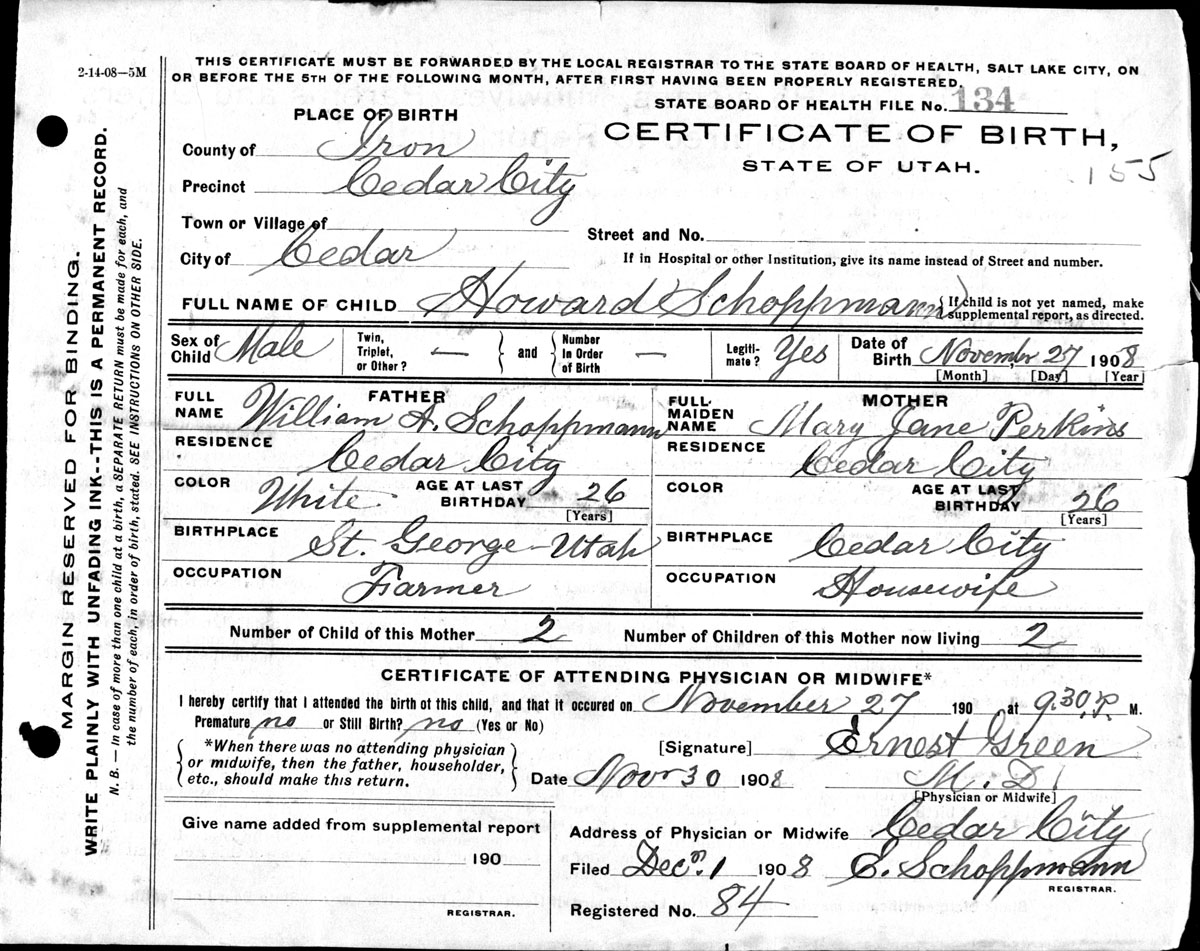 2-14-08—5M
THIS CERTIFICATE MUST BE FORWARDED BY THE LOCAL REGISTRAR TO THE STATE BOARD OF HEALTH, SALT LAKE CITY, ON
OR BEFORE THE 5TH OF THE FOLLOWING MONTH, AFTER FIRST HAVING BEEN PROPERLY REGISTERED.
STATE BOARD OF HEALTH FILE No. 134
PLACE OF BIRTH
CERTIFICATE OF BIRTH,
STATE OF UTAH.
155
County of Iron
Precinct Cedar City
Town or Village of
Street and No.
City of Cedar
If in Hospital or other Institution, give its name instead of Street and number.
FULL NAME OF CHILD Howard Schoppmann { If child is not yet named, make
supplemental report, as directed.
Sex of Child Male Twin, Triplet, or Other? — and Number In Order of Birth — Legiti-mate? Yes Date of Birth November 27 1908
[Month] [Day] [Year]
FATHER
FULL NAME William A. Schoppmann
RESIDENCE Cedar City
COLOR White AGE AT LAST BIRTHDAY 26
[Years]
BIRTHPLACE St. George - Utah
OCCUPATION Farmer
MOTHER
FULL MAIDEN NAME Mary Jane Perkins
RESIDENCE Cedar City
COLOR AGE AT LAST BIRTHDAY 26
[Years]
BIRTHPLACE Cedar City
OCCUPATION Housewife
Number of Child of this Mother 2 Number of Children of this Mother now living 2
CERTIFICATE OF ATTENDING PHYSICIAN OR MIDWIFE*
I hereby certify that I attended the birth of this child, and that it occured on November 27 190 at 9.30. P. M.
Premature no or Still Birth? no (Yes or No)
*When there was no attending physician
or midwife, then the father, householder,
etc., should make this return.
[Signature] Ernest Green
Date Novr 30 1908 M. D.
[Physician or Midwife]
Give name added from supplemental report
190
REGISTRAR.
Address of Physician or Midwife Cedar City
Filed Decm. 1 1908 E. Schoppmann
REGISTRAR.
Registered No. 84
MARGIN RESERVED FOR BINDING.
WRITE PLAINLY WITH UNFADING INK--THIS IS A PERMANENT RECORD.
N. B. — In case of more than one child at a birth, a SEPARATE RETURN must be made for each, and
the number of each, in order of birth, stated. SEE INSTRUCTIONS ON OTHER SIDE.